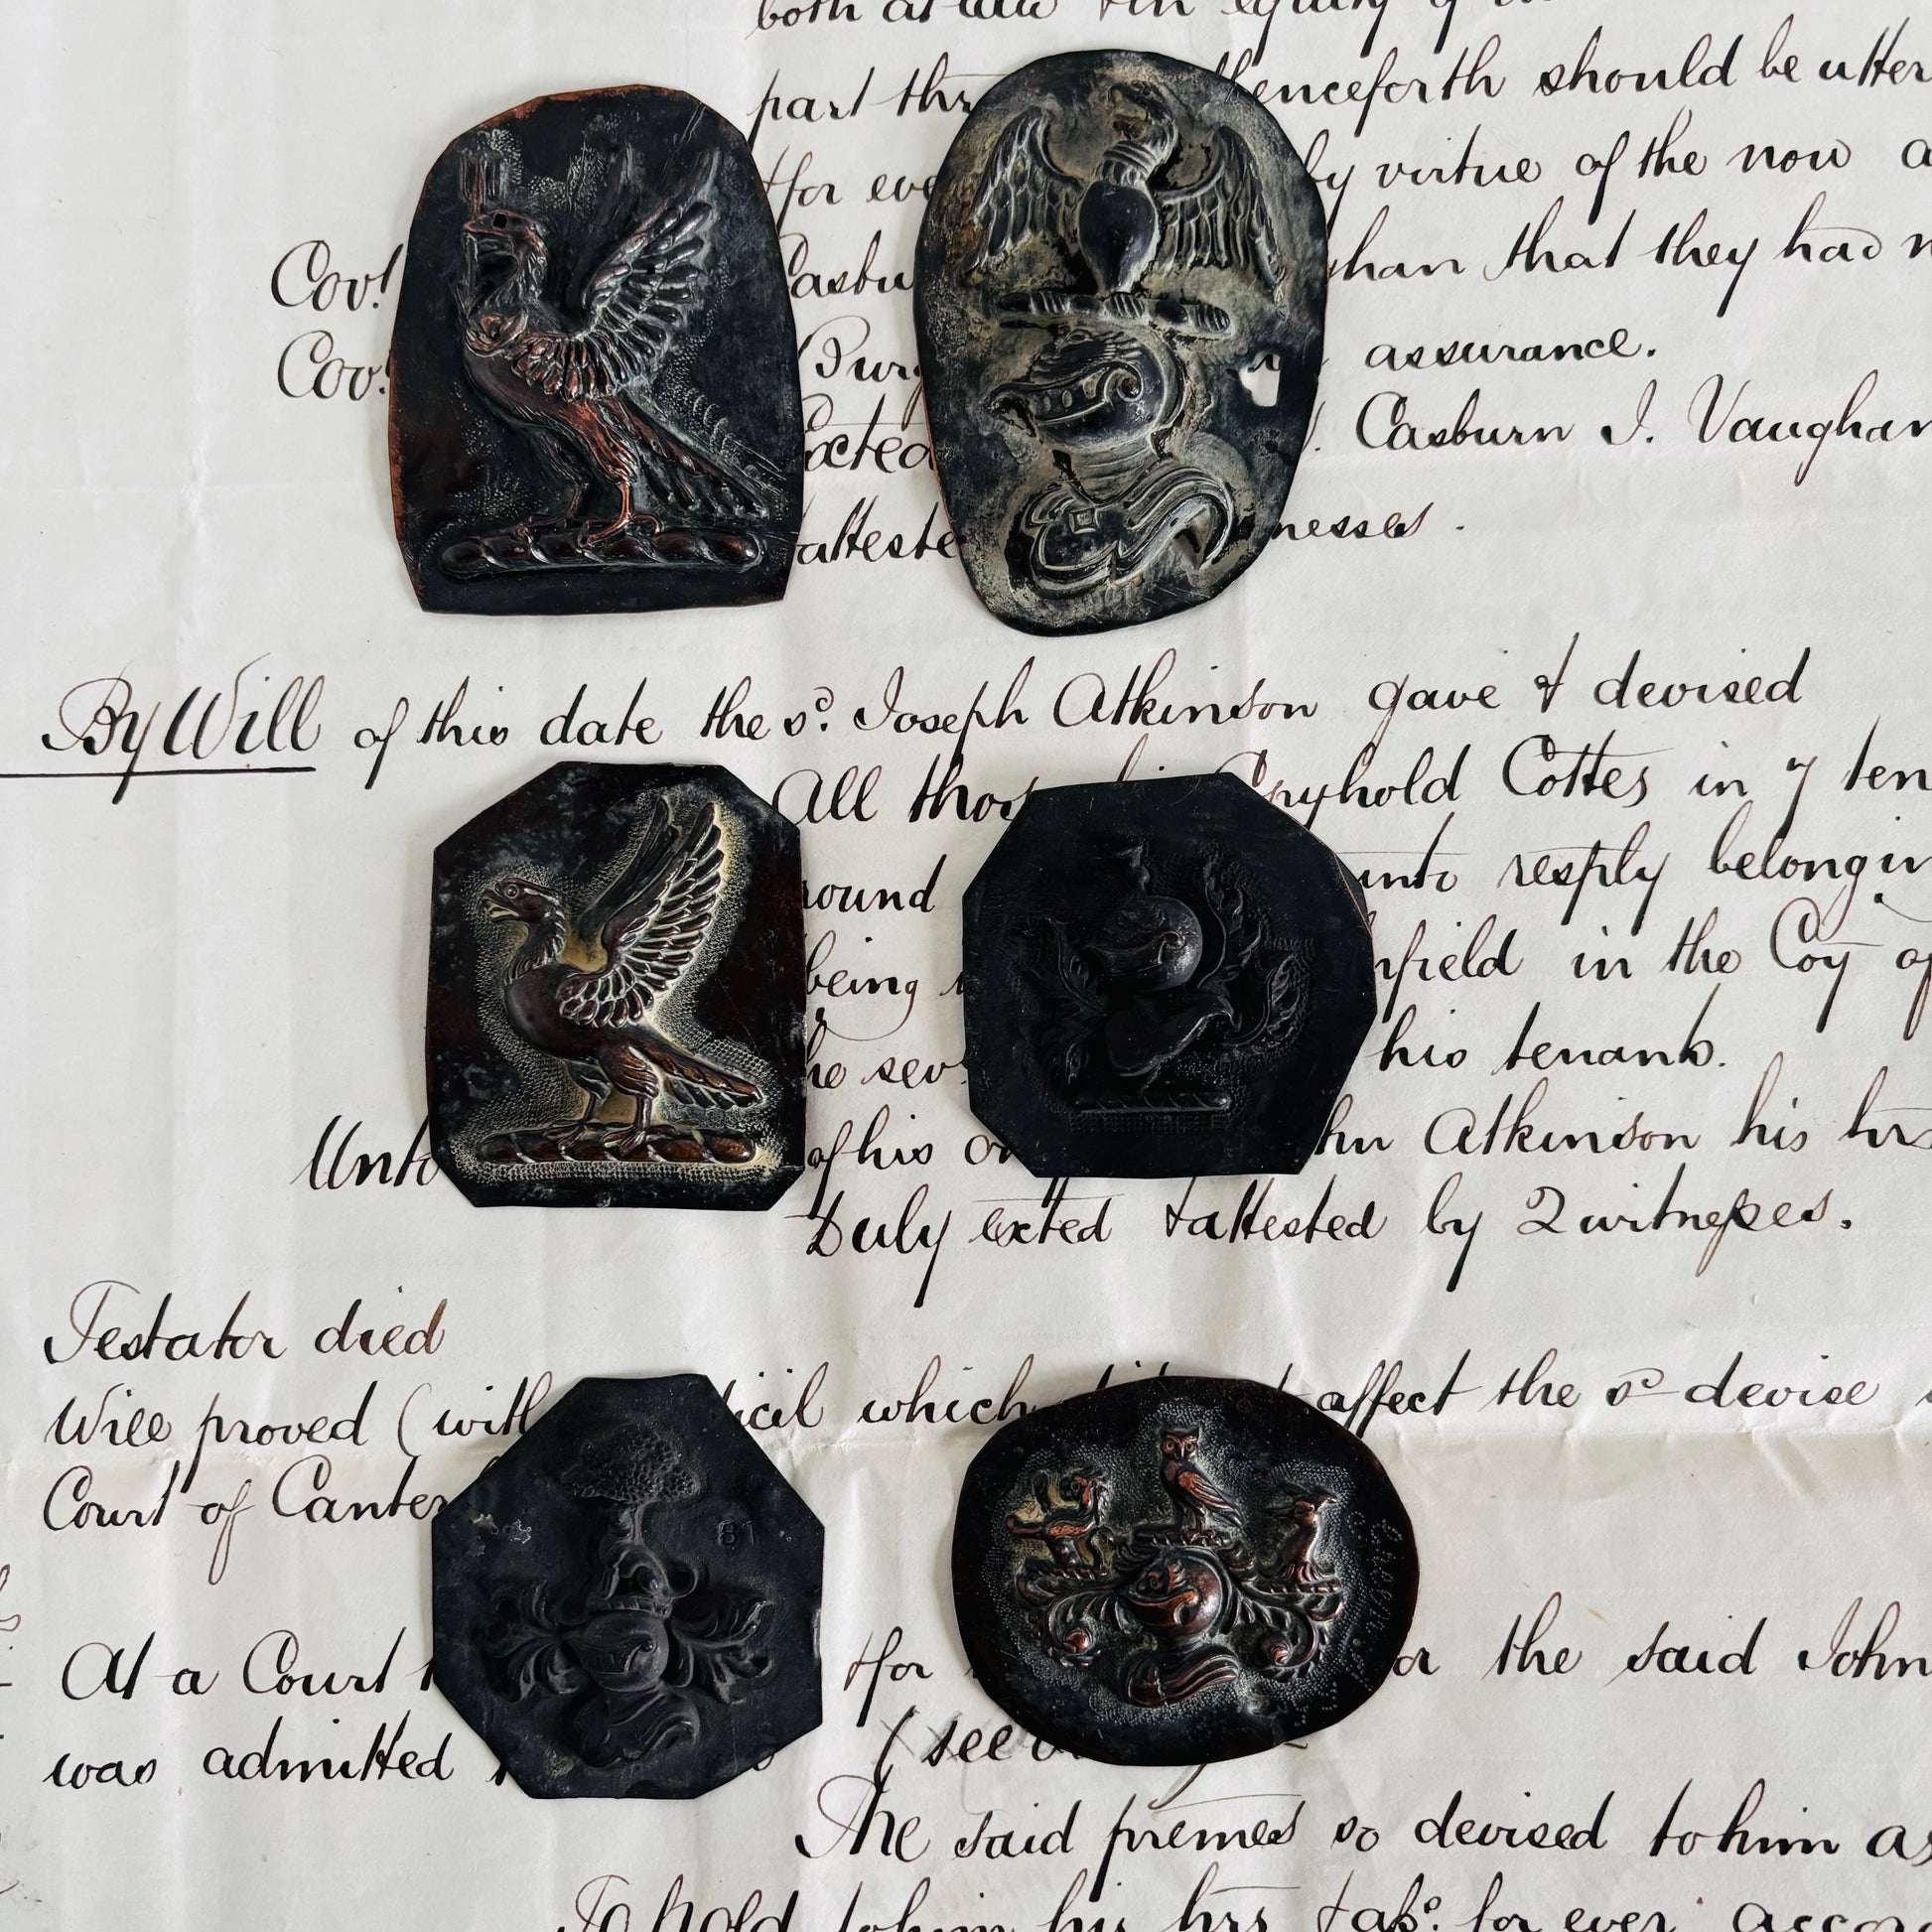 both at law & in equity of
part thenceforth should be utter
& for eve by virtue of the now a
Covt Casbu han that they had n
Covt Purg assurance.
Excted J. Casburn J. Vaughan
& atteste nesses.
By Will of this date the sd. Joseph Atkinson gave & devised
All thos his Copyhold Cottes in 7 ten
round unto resply belongin
being nfield in the Coy of
he sev his tenants.
Unto of his hn Atkinson his hrs
Duly excted & attested by 2 witnesses.
Testator died
Will proved (with icil which affect the sd devise
Court of Canter
At a Court & for or the said John
was admitted (see
The said premes so devised to him as
To hold to him his hrs & ass. for ever acco
81